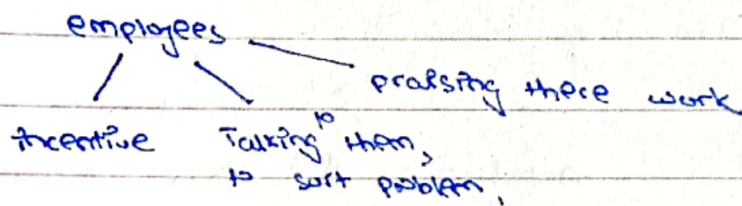 employees
praising there work
incentive Talking to them,
to sort problem,